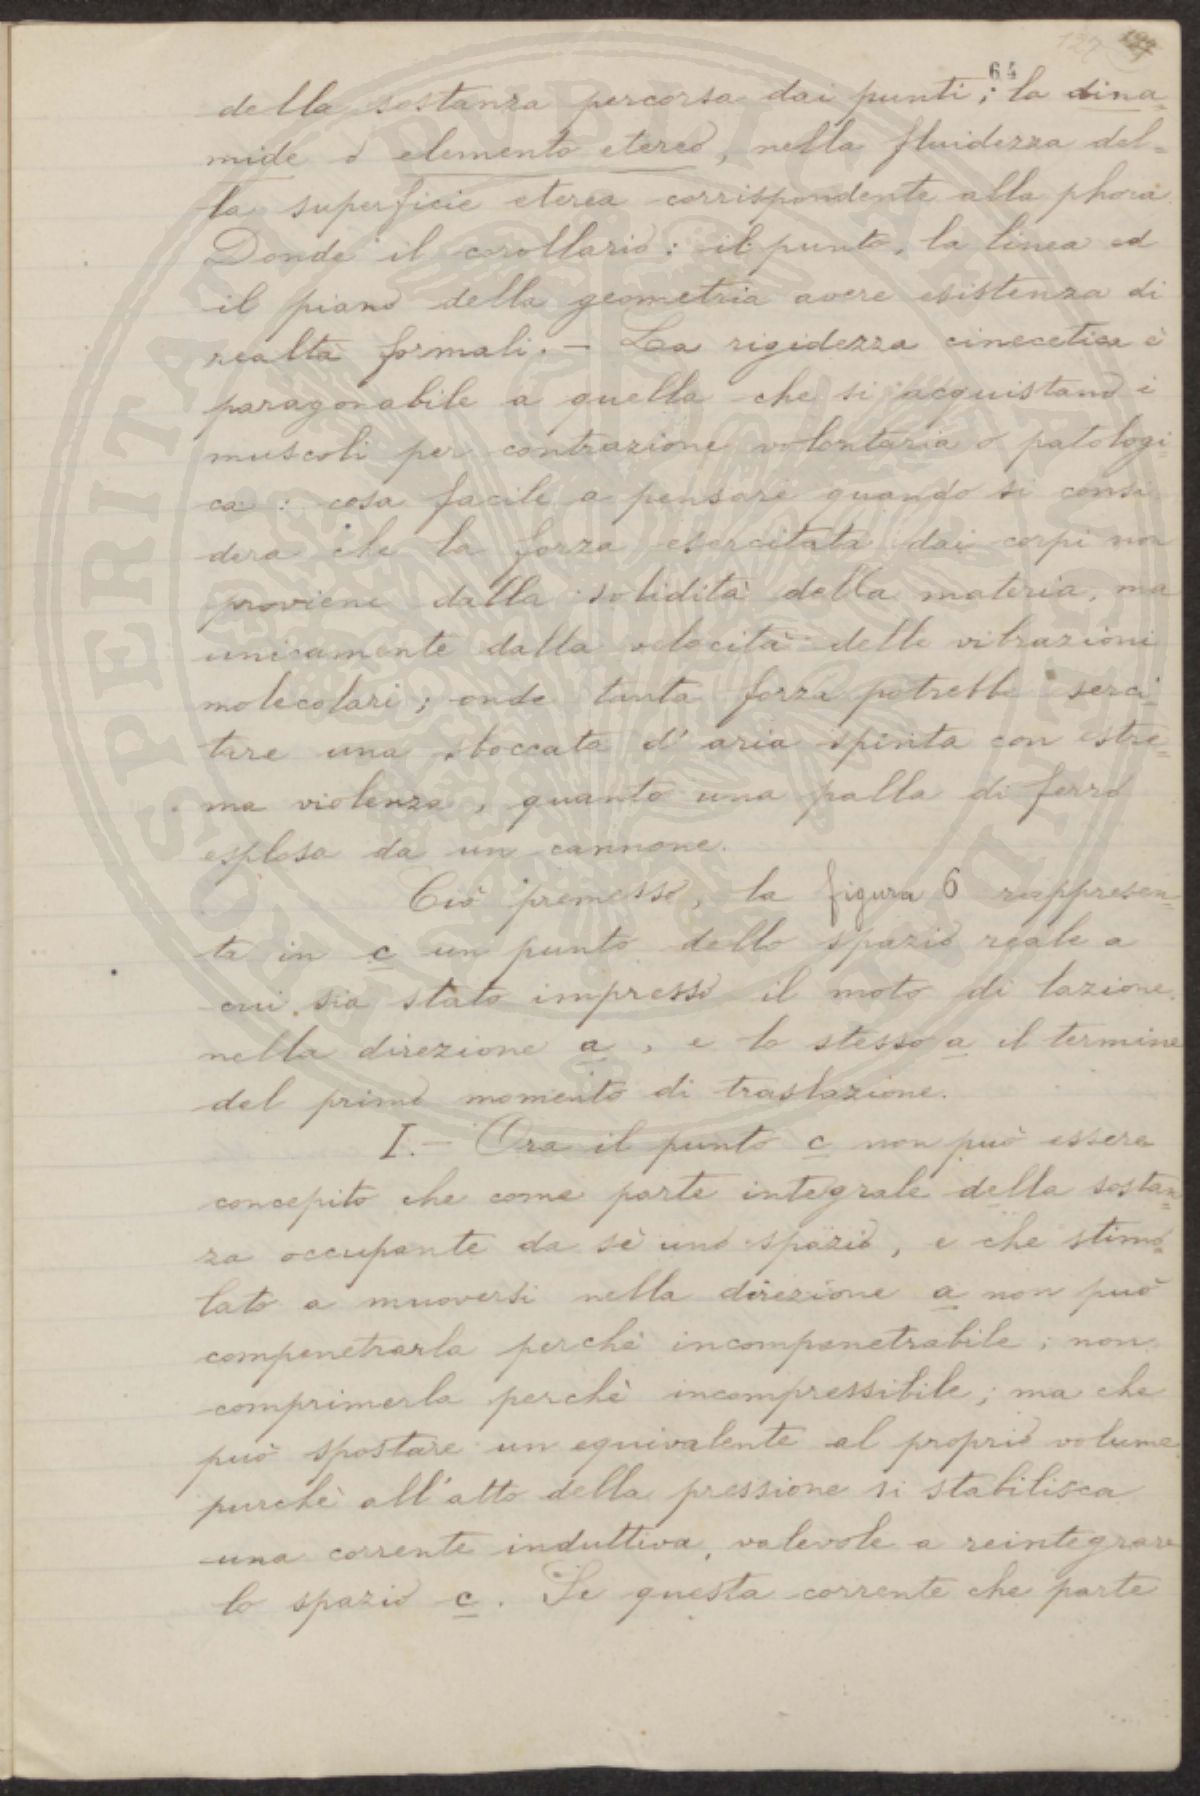 127
64
della sostanza percorsa dai punti; la dina=
mide o elemento etereo, nella fluidezza del=
la superficie eterea corrispondente alla phora.
Donde il corollario: il punto, la linea ed
il piano della geometria avere esistenza di
realtà formali. – La rigidezza cinecetica è
paragonabile a quella che si acquistano i
muscoli per contrazione volontaria o patologi=
ca: cosa facile a pensare quando si consi
dera che la forza esercitata dai corpi non
proviene dalla solidità della materia, ma
unicamente dalla velocità delle vibrazioni
molecolari; onde tanta forza potrebbe serci=
tare una sboccata d'aria spinta con estre=
ma violenza, quanto una palla di ferro
esplosa da un cannone.
Ciò premesso, la figura 6 rappresen=
ta in c un punto dello spazio reale a
cui sia stato impresso il moto di lazione
nella direzione a, e lo stesso a il termine
del primo momento di traslazione.
I. – Ora il punto c non può essere
concepito che come parte integrale della sostan=
za occupante da sè uno spazio, e che stimo=
lato a muoversi nella direzione a non può
compenetrarla perchè incompenetrabile; non
comprimerla perchè incompressibile; ma che
può spostare un equivalente al proprio volume
purchè all'atto della pressione si stabilisca
una corrente induttiva, valevole a reintegrare
lo spazio c. Se questa corrente che parte
PROSPERITATI PVBLICAE AVGENDAE